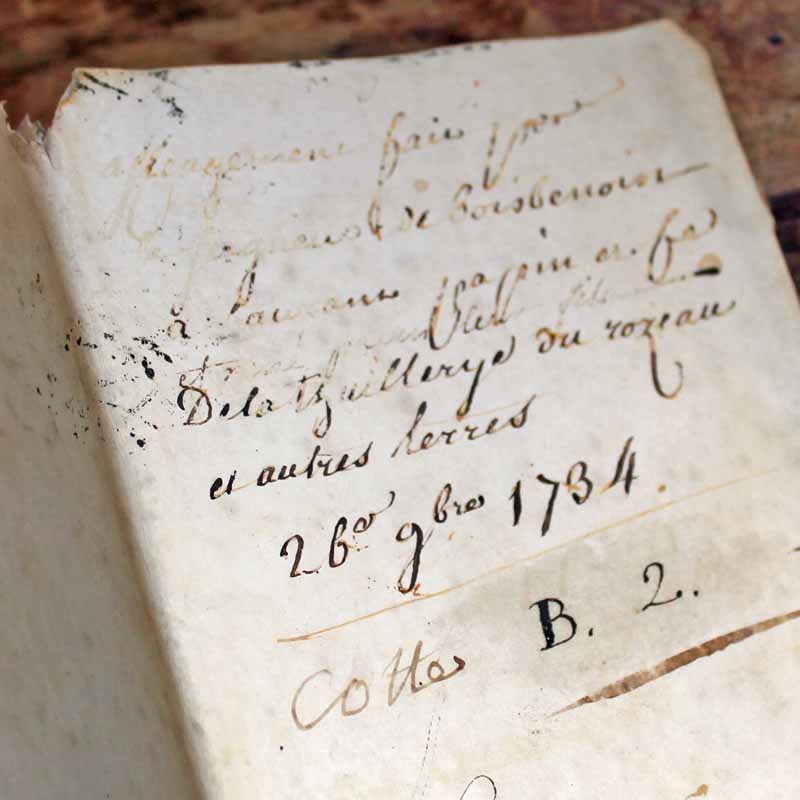 affeagement fait par
seigneur de boisbenoist
a Laurant papin et. fe
Dela thuillerye du rozeau
et autres terres
26e 9bre 1734.
Cotte B. 2.